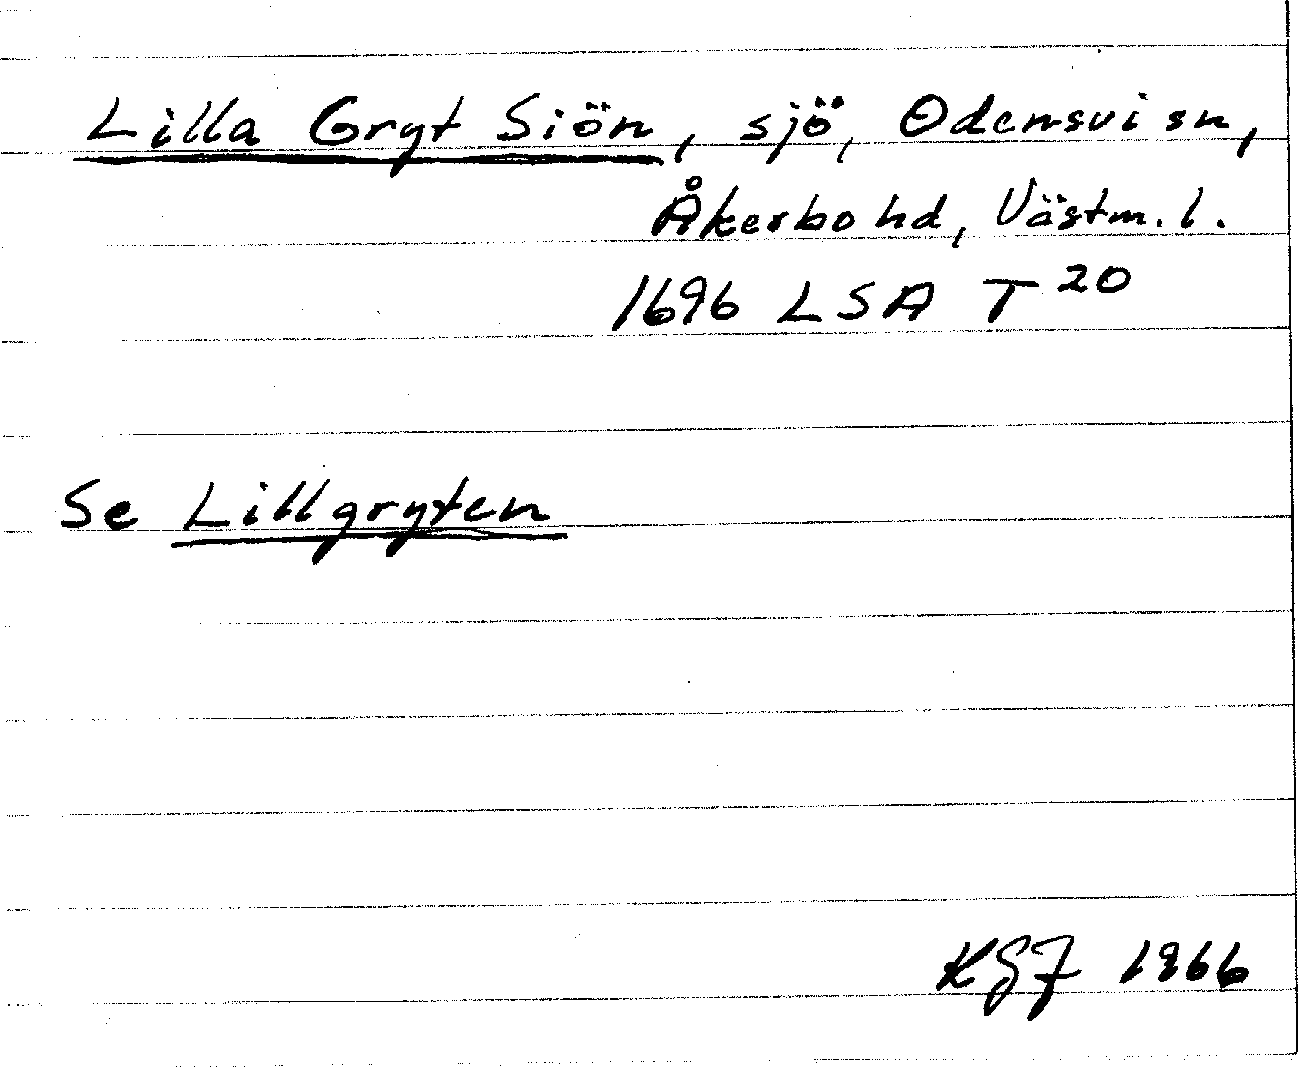 Lilla Gryt Siön, sjö, Odensvi sn,
Åkerbo hd, Västm. l.
1696 LSA T 20
Se Lillgryten
KGF 1966